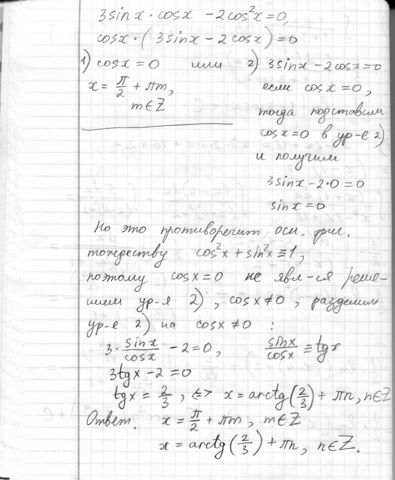 3sinx·cosx - 2cos²x=0,
cosx·(3sinx-2cosx)=0
1) cosx=0 или 2) 3sinx-2cosx=0
x=π/2+πm, если cosx=0,
m∈Z тогда подставим
cosx=0 в ур-е 2)
и получим
3sinx-2·0=0
sinx=0
Но это противоречит осн. триг.
тождеству cos²x+sin²x≡1,
поэтому cosx=0 не явл-ся реше-
нием ур-я 2), cosx≠0, разделим
ур-е 2) на cosx≠0:
3·sinx/cosx-2=0, sinx/cosx≡tgx
3tgx-2=0
tgx=2/3, <=> x=arctg(2/3)+πn, n∈Z
Ответ. x=π/2+πm, m∈Z
x=arctg(2/3)+πn, n∈Z.